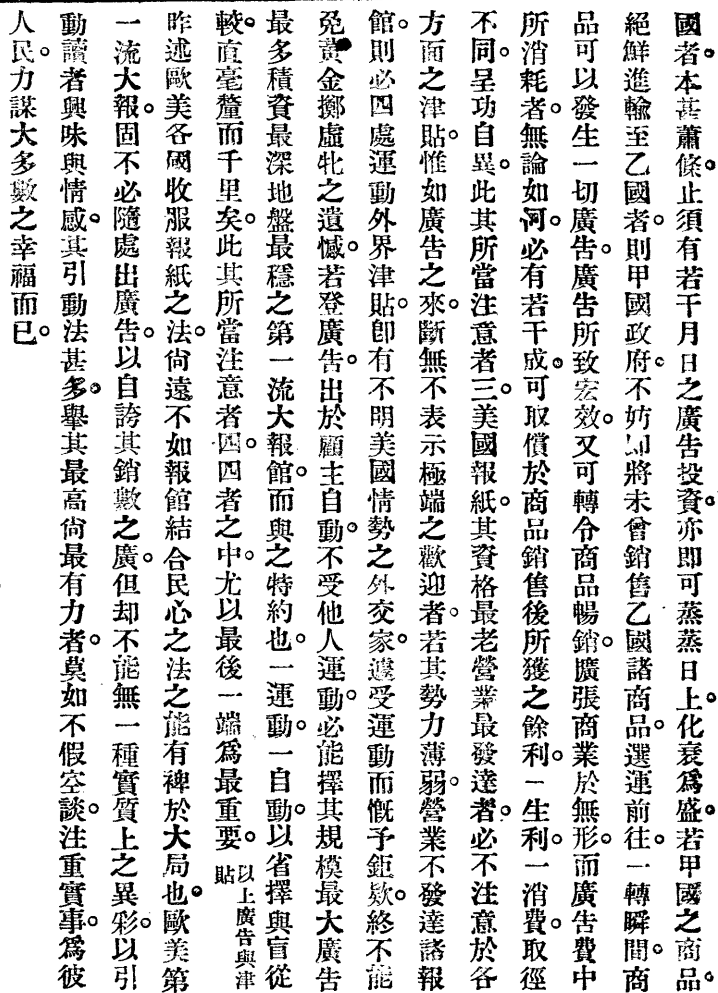 國者。本甚蕭條。止須有若干月日之廣告投資。亦即可蒸蒸日上。化衰爲盛。若甲國之商品。
絕鮮進輸至乙國者。則甲國政府。不妨即將未曾銷售乙國諸商品。選運前往。一轉瞬間。商
品可以發生一切廣告。廣告所致宏效。又可轉令商品暢銷。廣張商業於無形。而廣告費中
所消耗者。無論如河。必有若干成。可取償於商品銷售後所獲之餘利。一生利。一消費。取徑
不同。呈功自異。此其所當注意者三。美國報紙。其資格最老營業最發達者。必不注意於各
方面之津貼。惟如廣告之來。斷無不表示極端之歡迎者。若其勢力薄弱。營業不發達諸報
館。則必四處運動外界津貼。卽有不明美國情勢之外交家。遽受運動而慨予鉅欵。終不能
免黃金擲虛牝之遺憾。若登廣告。出於顧主自動。不受他人運動。必能擇其規模最大廣告
最多積資最深地盤最穩之第一流大報館。而與之特約也。一運動。一自動。以省擇與盲從
較。直毫釐而千里矣。此其所當注意者四。四者之中。尤以最後一端爲最重要。以上廣告與津貼
昨述歐美各國收服報紙之法。尙遠不如報館結合民心之法之能有裨於大局也。歐美第
一流大報。固不必隨處出廣告。以自誇其銷數之廣。但却不能無一種實質上之異彩。以引
動讀者興味與情感。其引動法甚多。舉其最高尙最有力者。莫如不假空談。注重實事。爲彼
人民。力謀大多數之幸福而已。